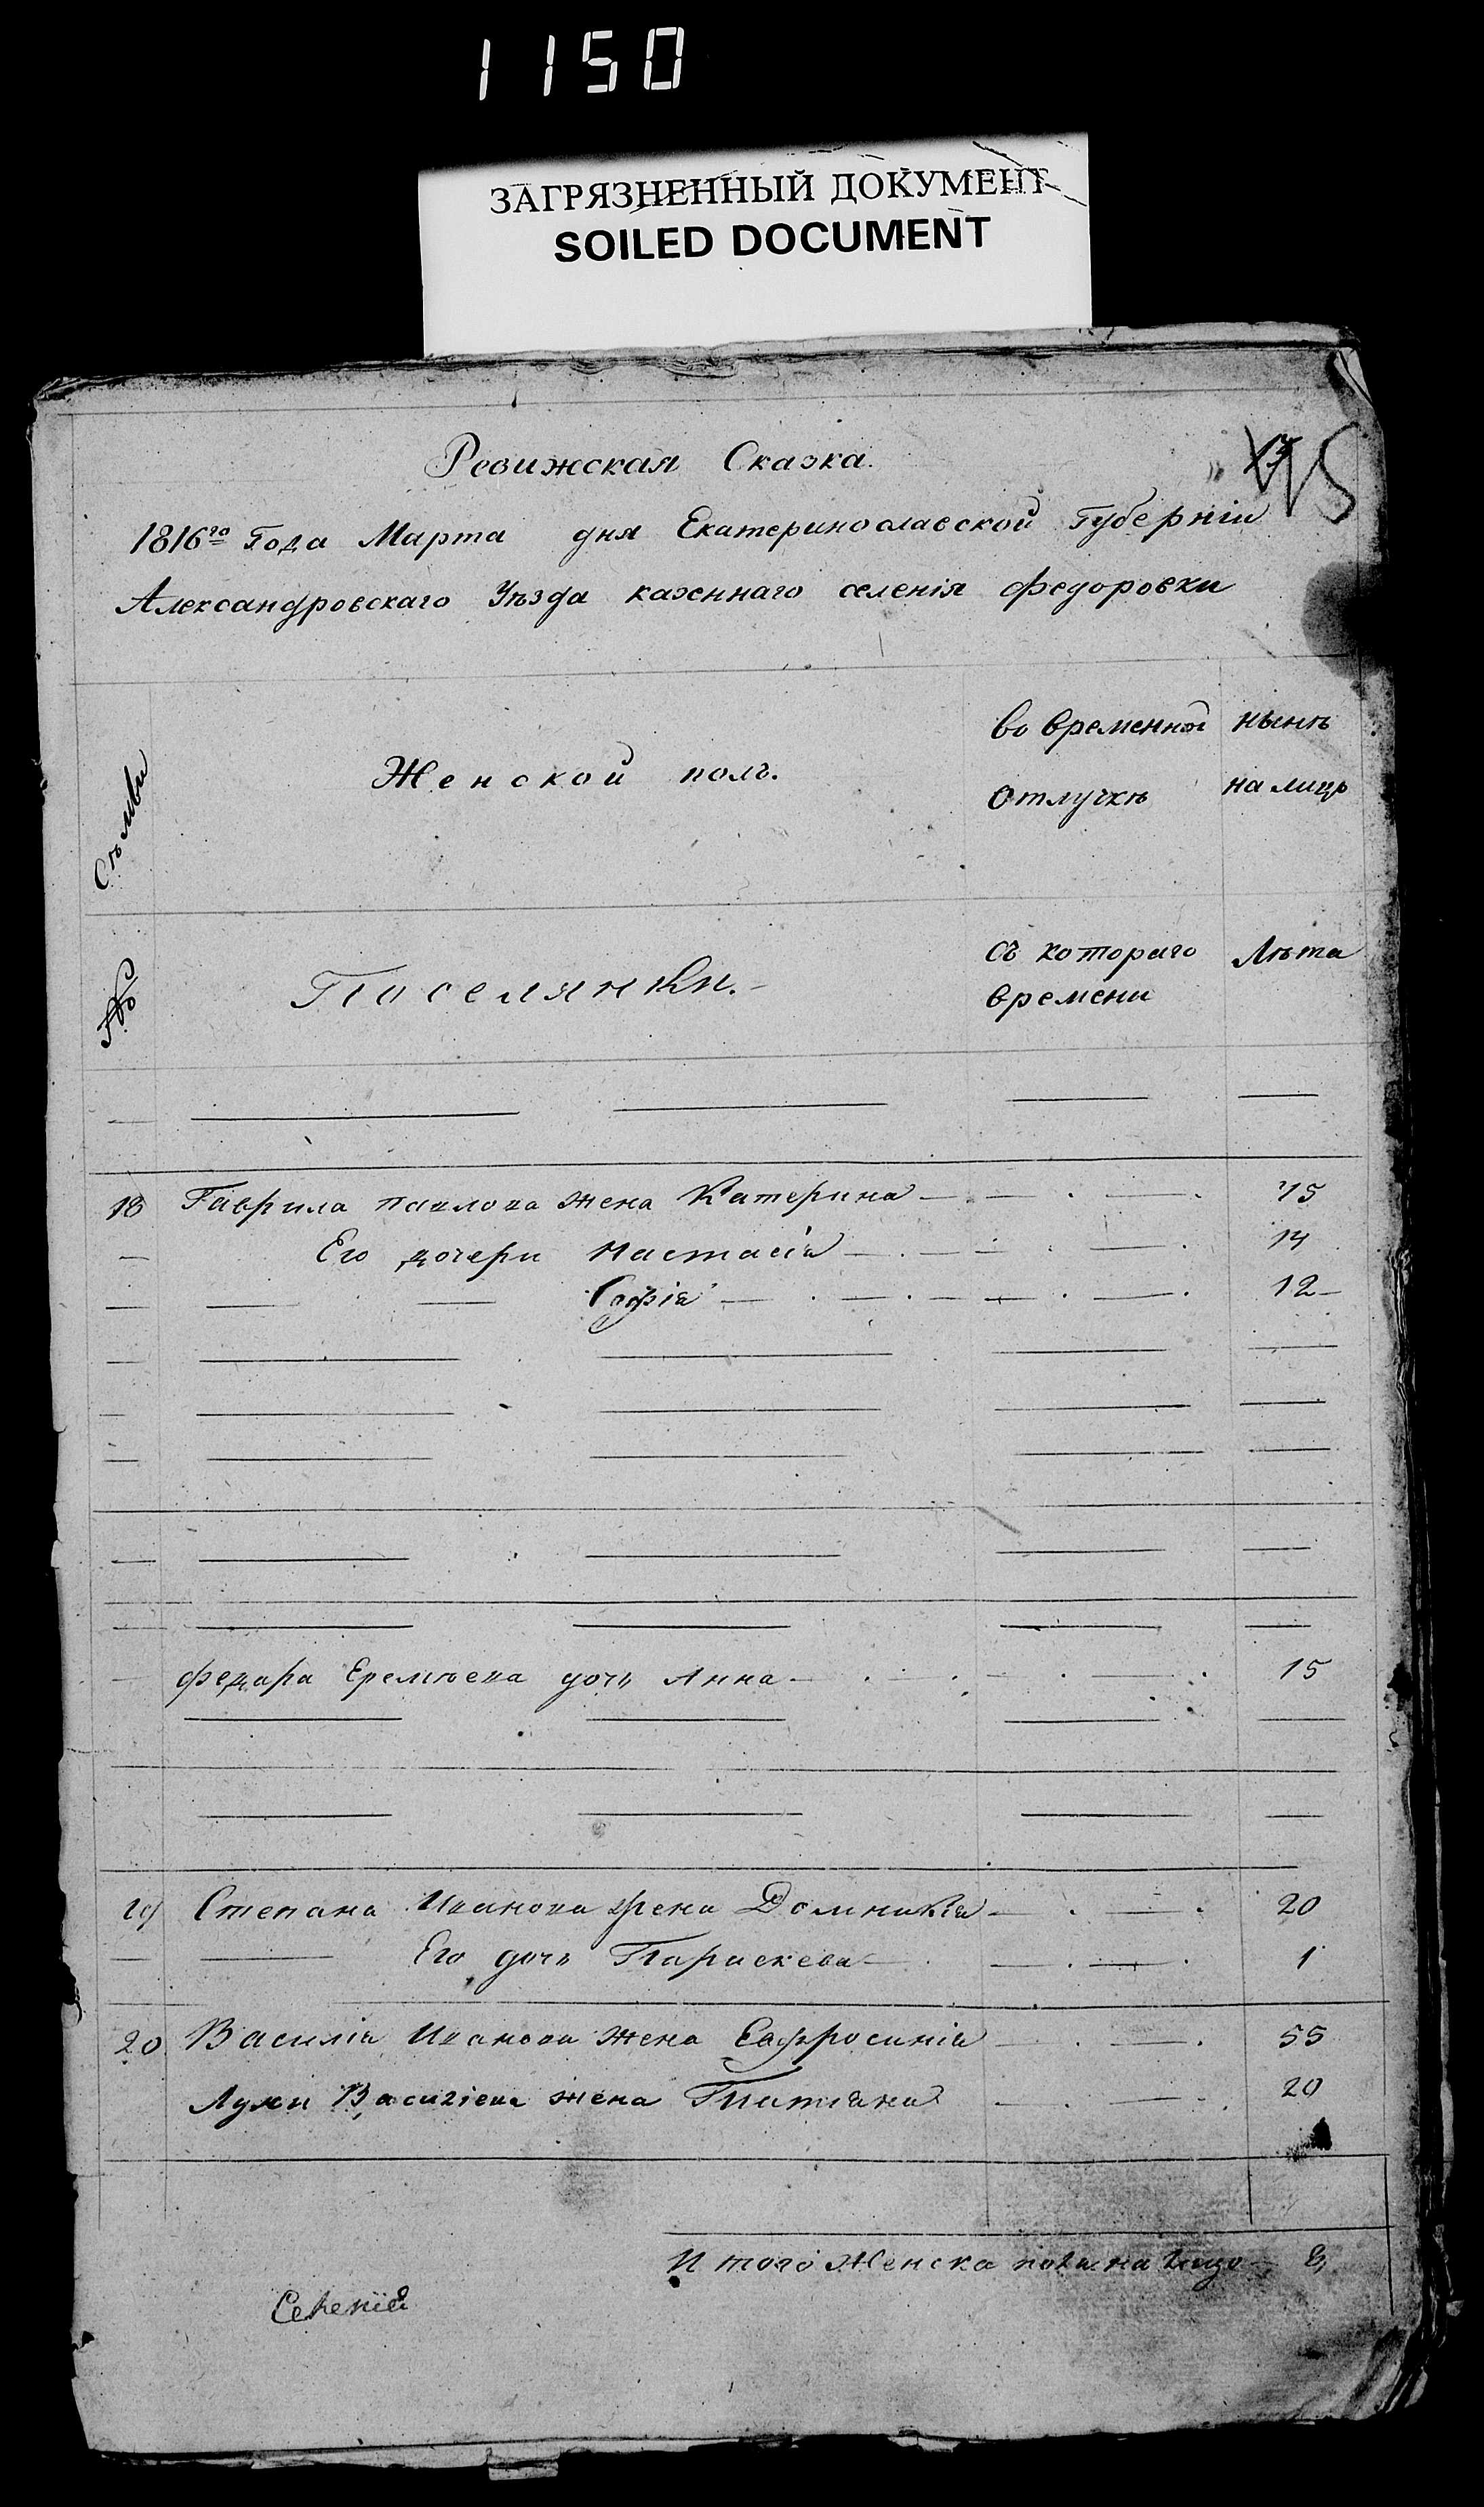 1150
ЗАГРЯЗНЕННЫЙ ДОКУМЕНТ
SOILED DOCUMENT
Ревижская Сказка.
1816го Года Марта дня Екатеринославской Губерніи
Александровскаго Уѣзда казеннаго селенія Федоровки
Сѣмьи
Женской полъ.
во временной отлучкѣ
нынѣ на лицо
№
Поселянки.
съ котораго времени
Лѣта
18 Гаврила Павлова жена Катерина 45
Его дочери Настасія 14
Софія 12
Федора Еремѣева дочь Анна 15
19 Степана Иванова жена Домникія 20
Его дочь Параскева 1
20 Василія Иванова жена Евфросинія 55
Луки Василіева жена Татіана 20
Итого Женска пола на лицо 8
Селенія